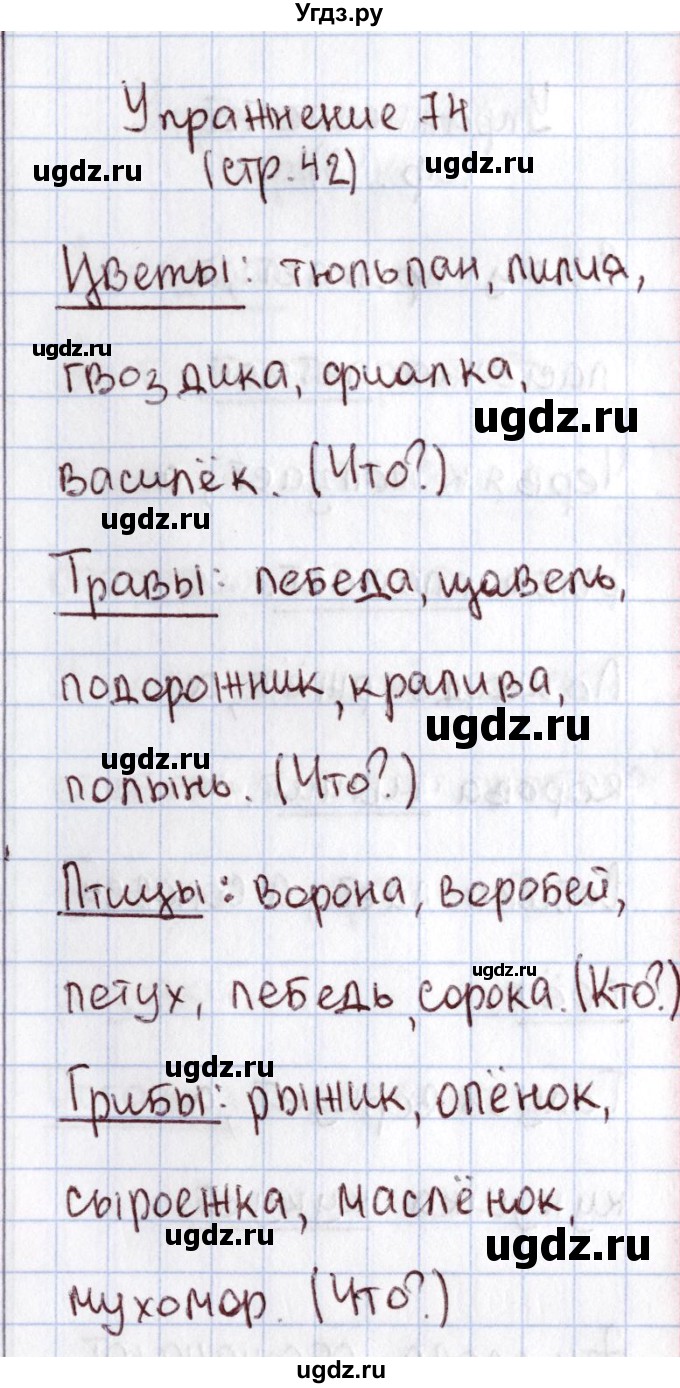 Угдз.ру
Упражнение 74
ugdz.ru
ugdz.ru
(стр.42)
Цветы: тюльпан, лилия,
ugdz.ru
гвоздика, фиалка,
ugdz.ru
василёк. (Что?)
ugdz.ru
Травы: лебеда, щавель,
подорожник, крапива,
ugdz.ru
ugdz.ru
полынь. (Что?)
Птицы: ворона, воробей,
ugdz.ru
петух, лебедь, сорока. (Кто?)
ugdz.ru
Грибы: рыжик, опёнок,
сыроежка, маслёнок,
ugdz.ru
ugdz.ru
мухомор. (Что?)
ugdz.ru